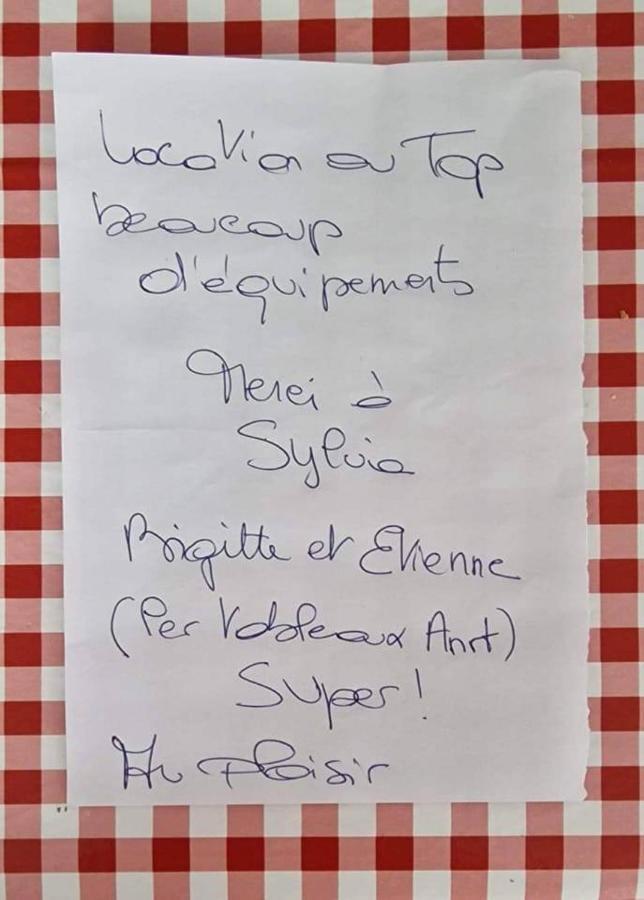 Location au Top
beaucoup
d'équipements
Merci à
Sylvia
Brigitte et Etienne
(Per tableaux Anrt)
Super!
Au Plaisir